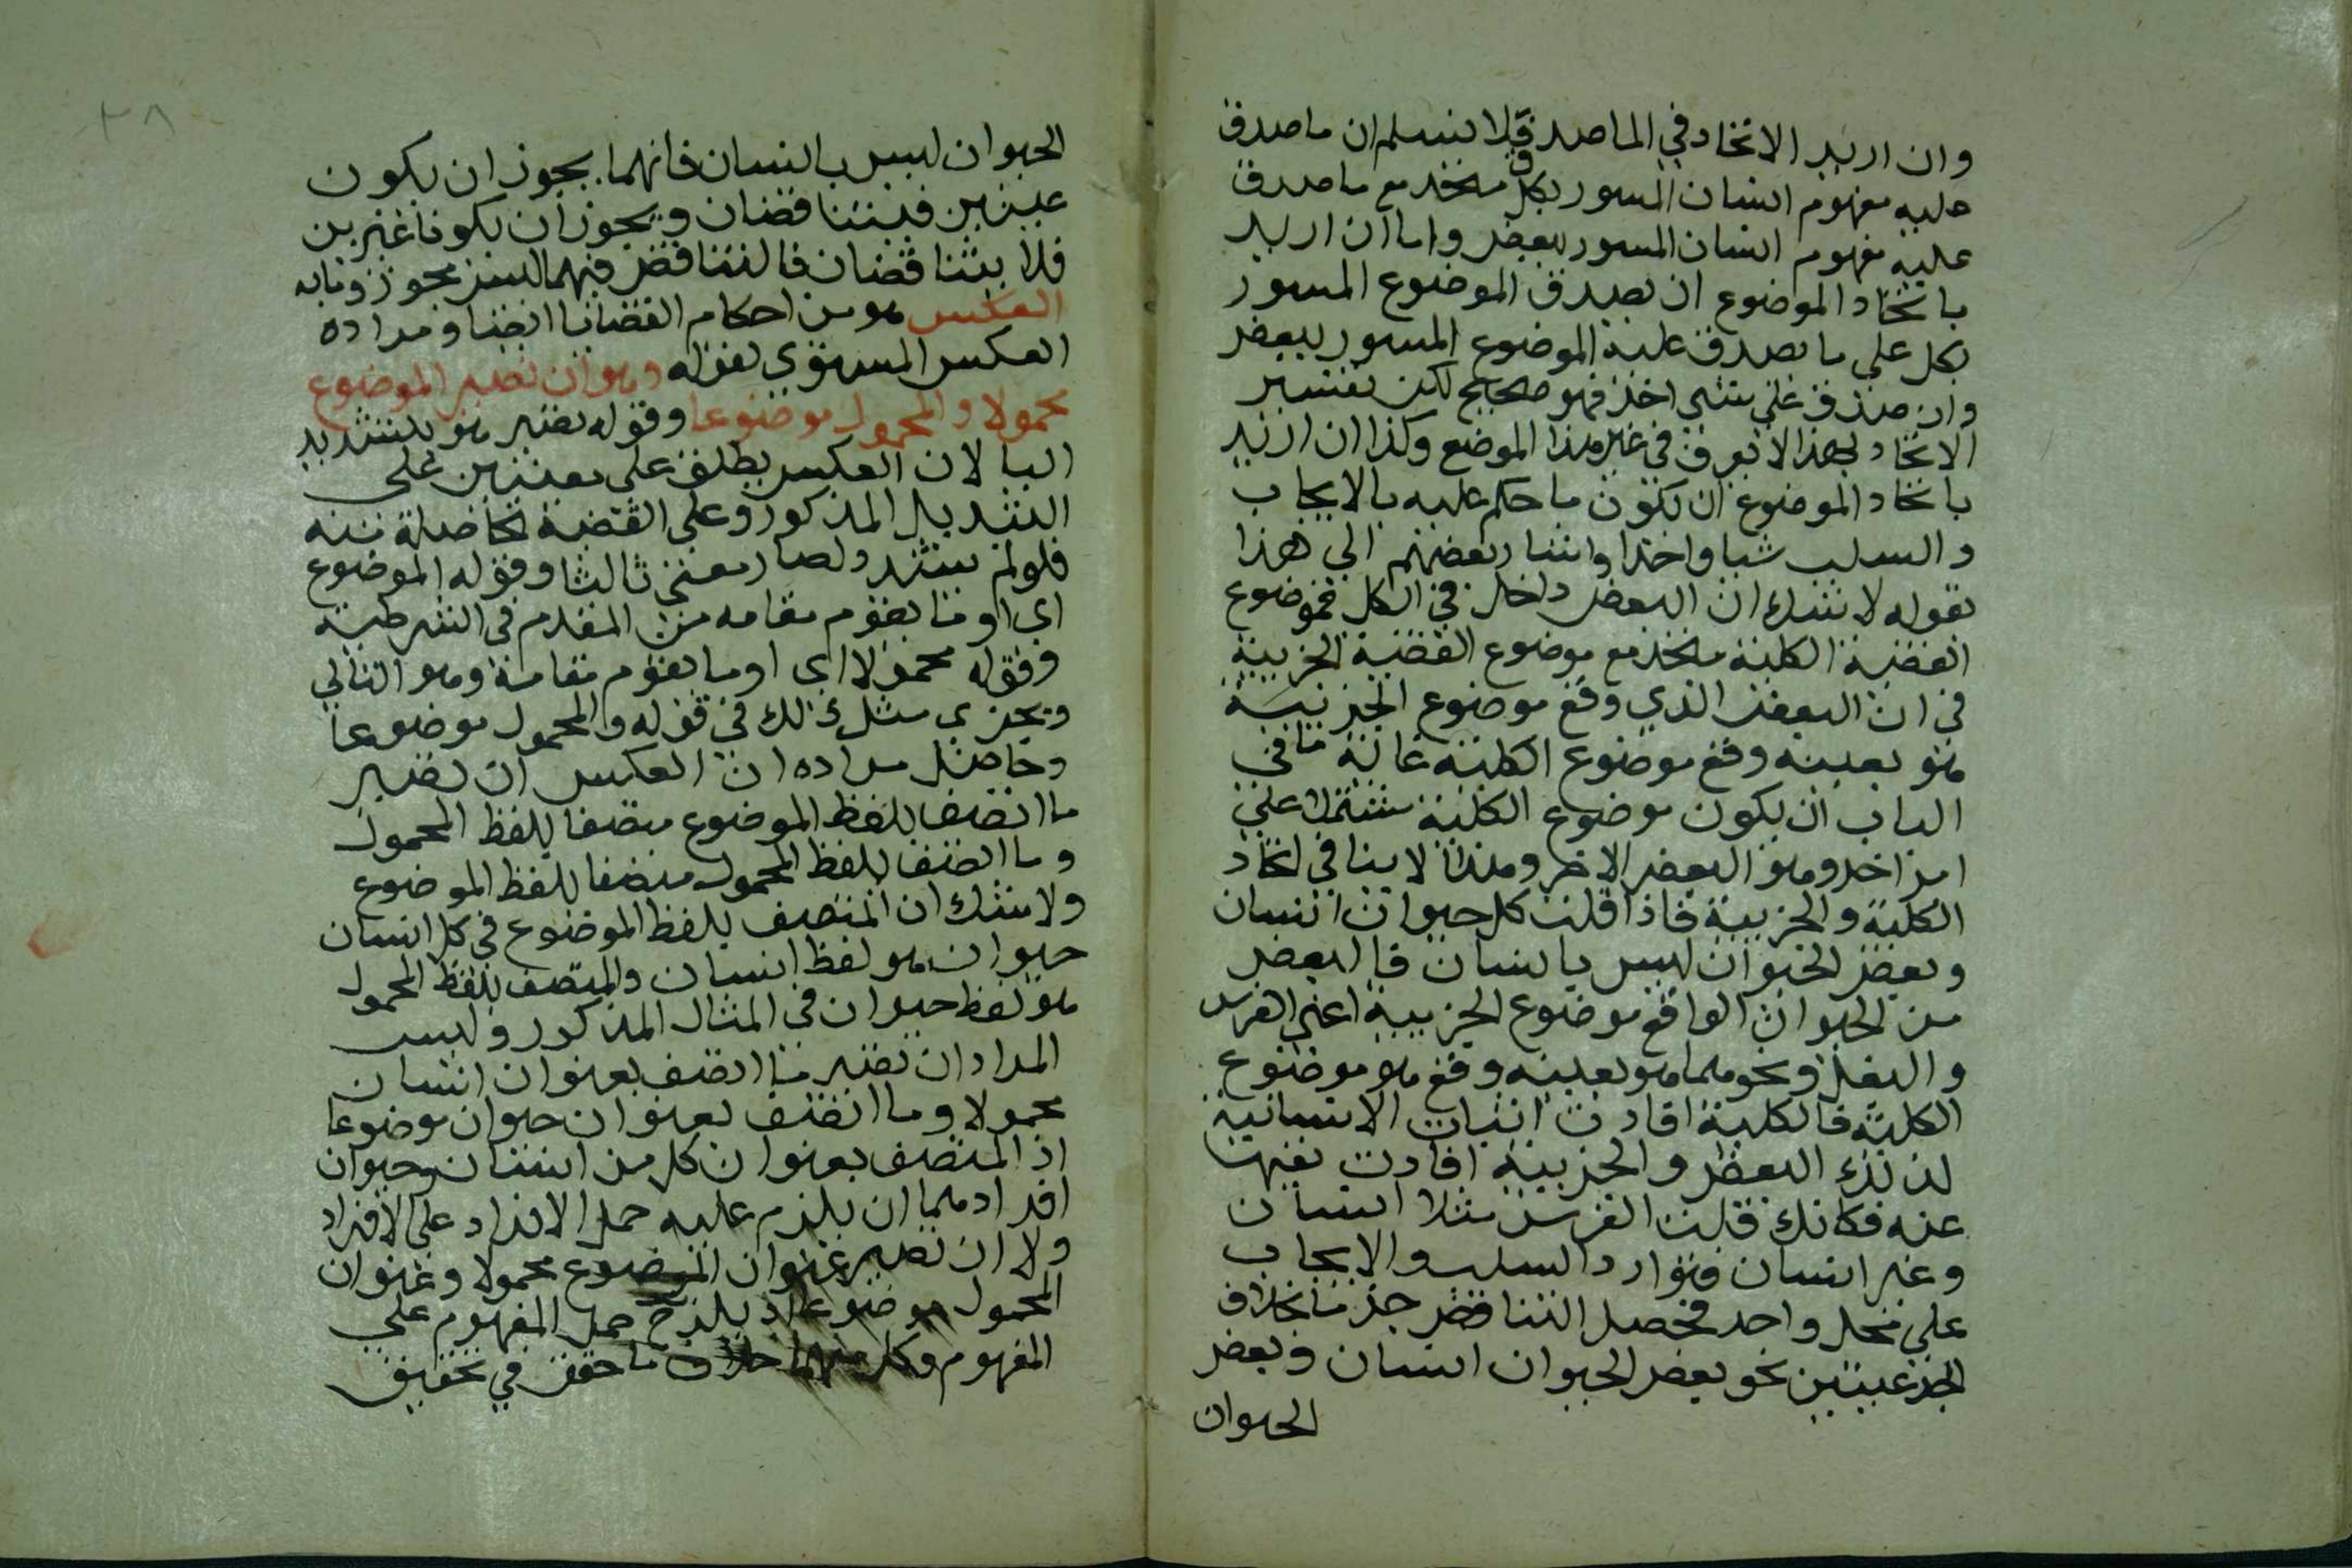 وان اريد الاتخاد في الماصدق فلا نسلم ان ما صدق
عليه مفهوم انسان المسور بكل متخد مع ما صدق
عليه مفهوم انسان المسور ببعض واما ان اريد
باتخاد الموضوع ان يصدق الموضوع المسور
بكل على ما يصدق عليه الموضوع المسور ببعض
وان صدق على شي اخر فهو صحيح لكن تفسير
الاتخاد بهذا لا يعرف في غير هذا الموضع وكذا ان اريد
باتخاد الموضوع ان يكون ما حكم عليه بالايجاب
والسلب شيا واحدا واشار بعضهم الى هذا
بقوله لا شك ان البعض داخل في الكل فموضوع
القضية الكلية متخد مع موضوع القضية الجزيية
في ان البعض الذي وقع موضوع الجزيية
هو بعينه وقع موضوع الكلية غاية ما في
الباب ان يكون موضوع الكلية مشتملا على
امر اخر وهو البعض الاخر وهذا لا ينافي اتخاد
الكلية والجزيية فاذا قلت كل حيوان انسان
وبعض الحيوان ليس بانسان فالبعض
من الحيوان الواقع موضوع الجزيية اعني الفرس
والبغل ونحوهما هو بعينه وقع هو موضوع
الكلية فالكلية افادت اثبات الانسانية
لذلك البعض والجزيية افادت نفيها
عنه فكانك قلت الفرس مثلا انسان
وغير انسان فتوارد السلب والايجاب
على محل واحد فحصل التناقض جزما بخلاف
الجزءيتين نحو بعض الحيوان انسان وبعض
الحيوان
الحيوان ليس بانسان فانهما يجوز ان يكون
عينين فيتناقضان ويجوز ان يكونا غيرين
فلا يتناقضان فالتناقض فيهما ليس مجوز وبابه
العكس هو من احكام القضايا ايضا ومراده
العكس المستوي لقوله وهو ان تصير الموضوع
محمولا والمحمول موضوعا وقوله تصير هو بتشديد
اليا لان العكس يطلق على معنيين على
التبديل المذكور وعلى القضية الحاصلة منه
فلو لم يشدد لصار معنى ثالثا وقوله الموضوع
اي او ما يقوم مقامه من المقدم في الشرطية
وقوله محمولا اي او ما يقوم مقامه وهو التالي
ويجري مثل ذلك في قوله والمحمول موضوعا
وحاصل مراده ان العكس ان تصير
ما اتصف بلفظ الموضوع متصفا بلفظ المحمول
وما اتصف بلفظ المحمول متصفا بلفظ الموضوع
ولا شك ان المتصف بلفظ الموضوع في كل انسان
حيوان هو لفظ انسان والمتصف بلفظ المحمول
هو لفظ حيوان في المثال المذكور وليس
المراد ان تصير ما اتصف بعنوان انسان
محمولا وما اتصف بعنوان حيوان موضوعا
اذ المتصف بعنوان كل من انسان وحيوان
افرادهما ان يلزم عليه حمل الافراد على الافراد
ولا ان تصير عنوان الموضوع محمولا وعنوان
المحمول موضوعا اذ يلزم ح حمل المفهوم على
المفهوم وكل منهما خلاف ما حقق في تحقيق
٢٨